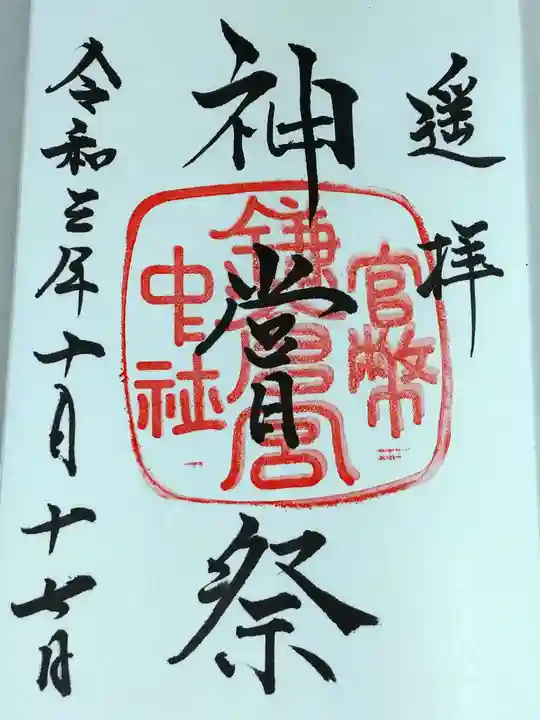 遥拝
神嘗祭
令和三年十月十七日
官幣
鎌倉宮
中社